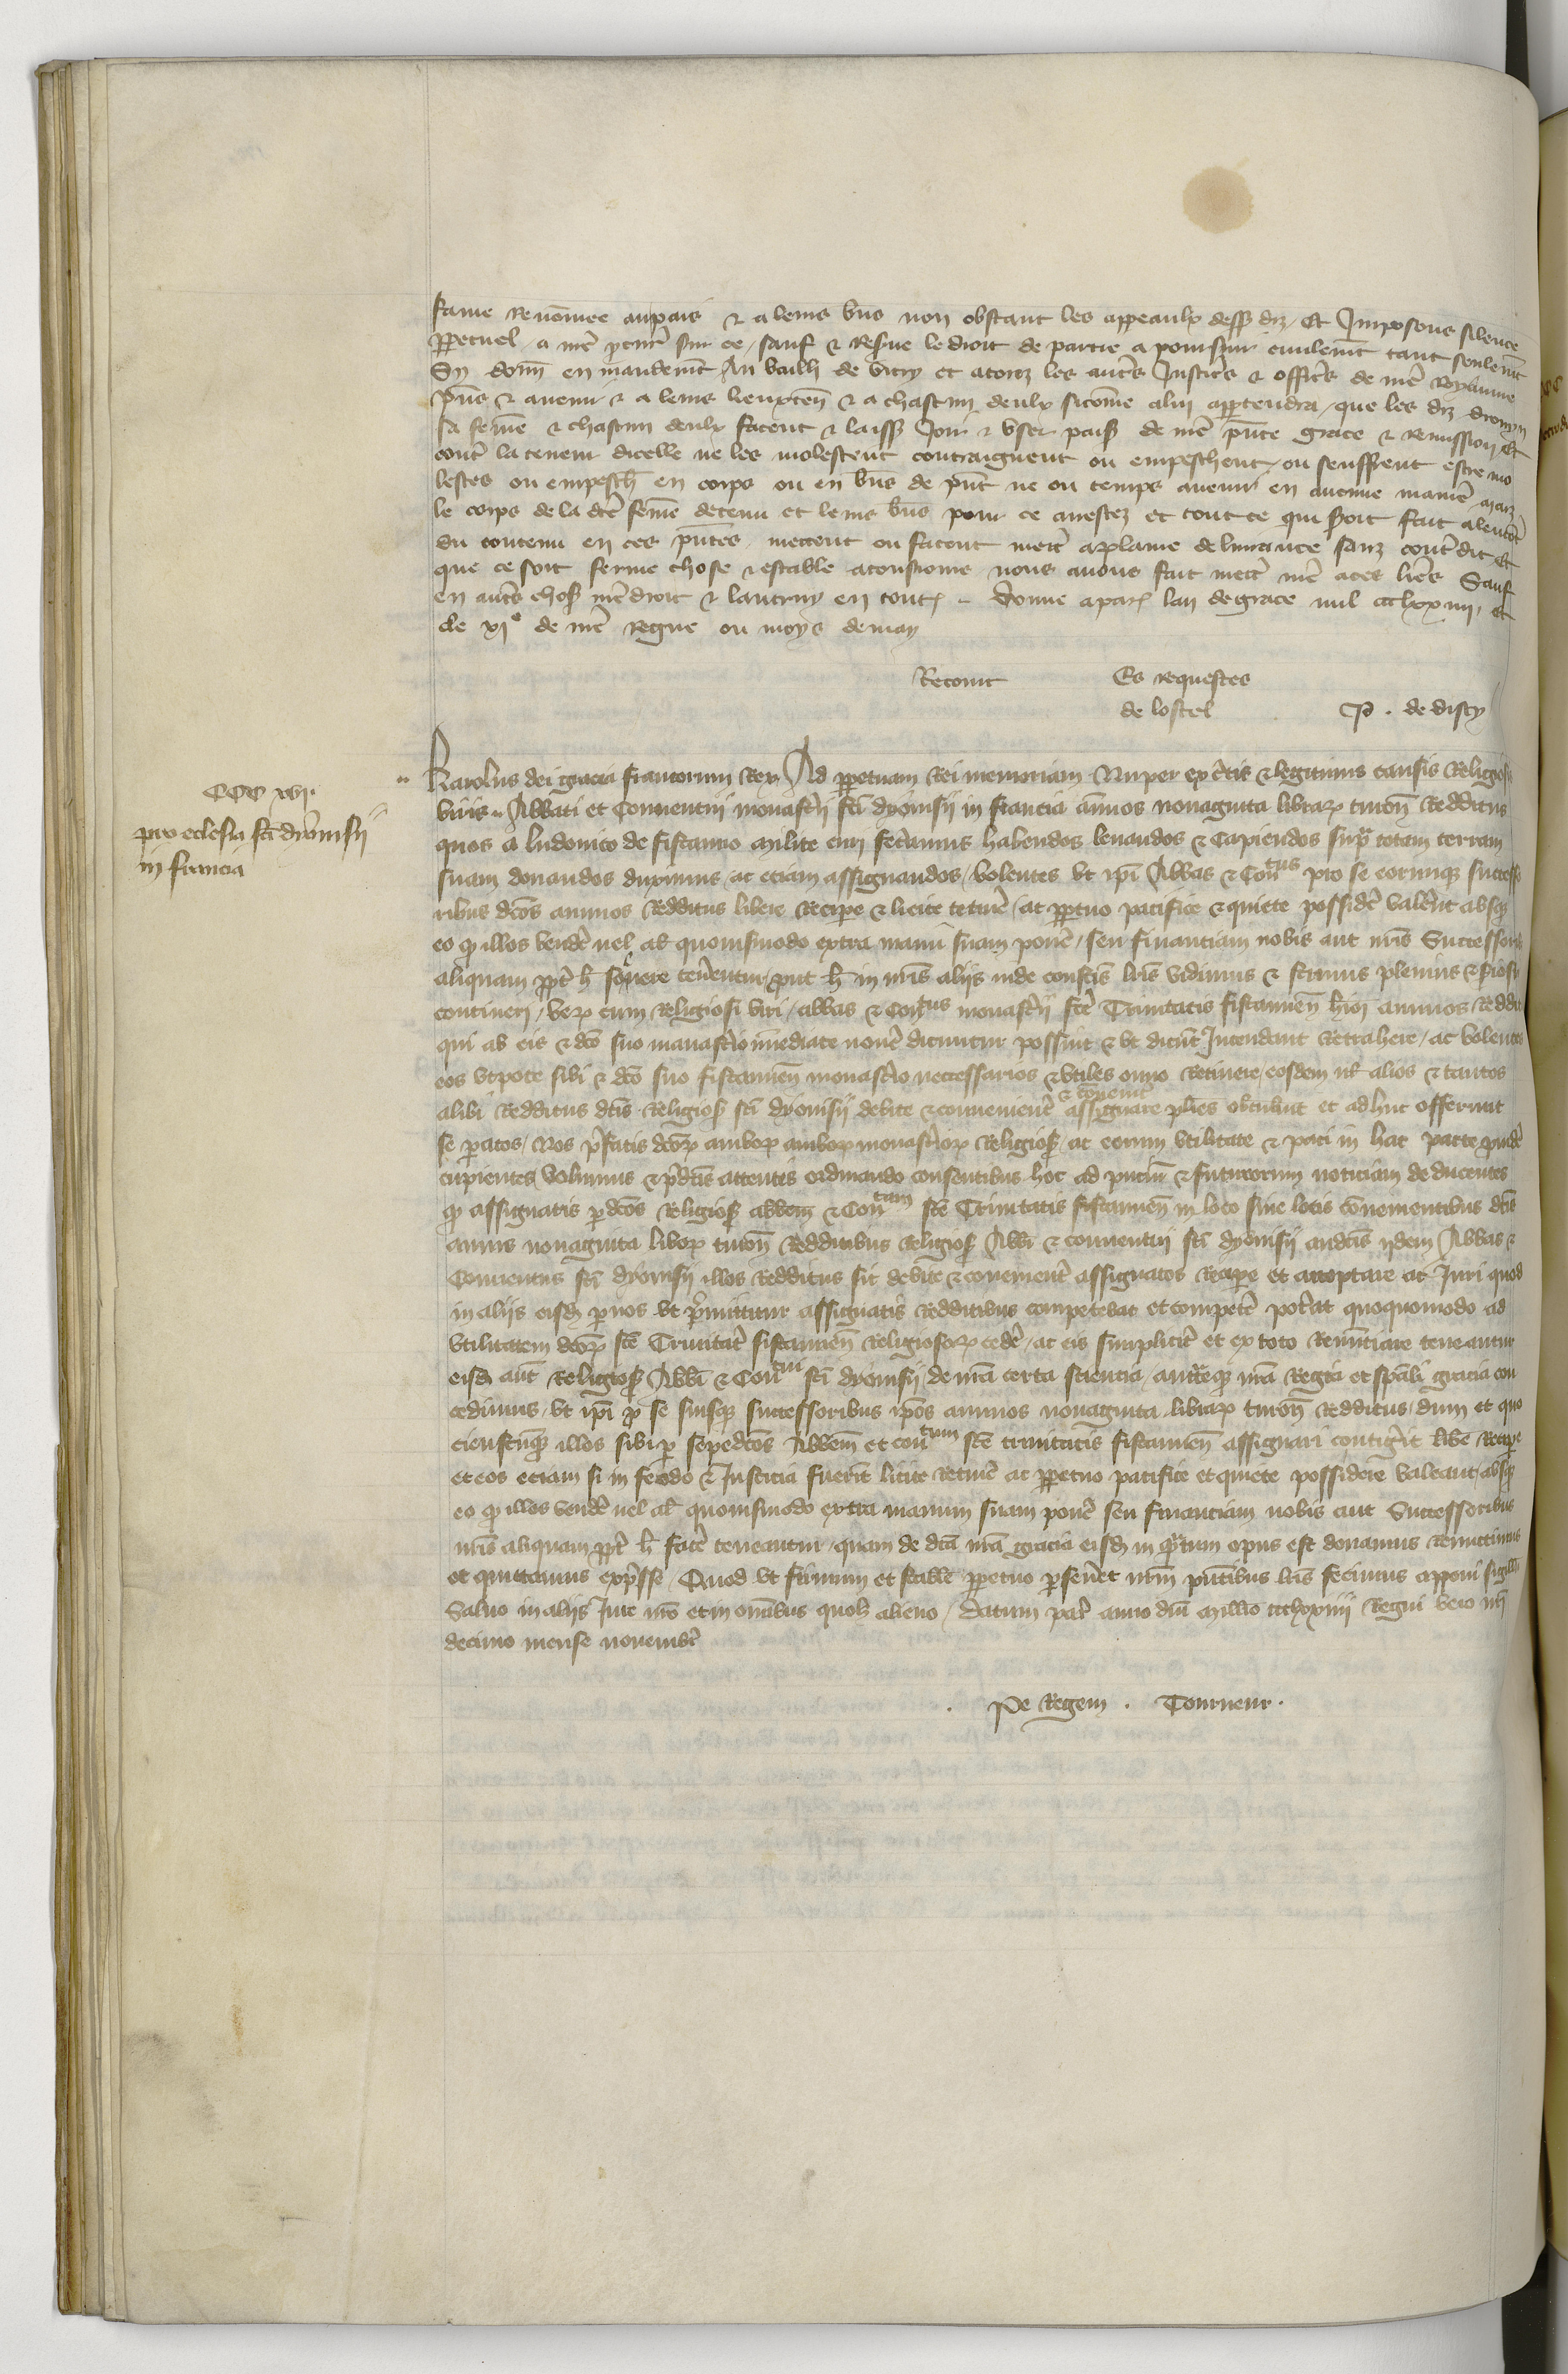 fame renommee aupais & a leurs bn̄s non obstant les appeaulx dess diz / Et Imposons silence
ppetuel / a nr̄e pcur̄ sur ce / sauf & resue le droit de partie a poursuir ciuilem̄t tant seulem̄t
Sy donn̄ en mandem̄t Au bailli de vitry et atouz les autr̄s Justic̄rs & offic̄rs de nr̄e Royaume
pn̄s & auenir & a leurs lieuxten̄ & a chascun deulx sicom̄e alui appartendra / que les diz
sa fem̄e & chascun deulx facent & laiss Joir & vser paisḡ de nr̄e pn̄te grace & remission / Et
contr̄ la teneur dicelle ne les molestent contraignent ou empeschent / ou seuffrent estre mo
lestes ou empesch̄ en corps ou en bn̄s de pn̄t ne ou temps auenir en aucune manier̄
le corps de la dc̄e fem̄e detenu et leurs bn̄s pour ce arrestez et tout ce qui seroit fait alencontr̄
du contenu en ces pn̄tes mettent ou facent mettr̄ aplaine deliurance sanz contr̄dit Et
que ce soit ferme chose & estable atousiours nous auons fait mettr̄ nr̄e aces lr̄es Sauf
en autr̄s chos nr̄e droit & lautruy en tout̄ .. donne a par̄ lan de grace mil ccclxxiiii / Et
de xi.e de nr̄e regne ou moys de may
Es requestes
de lostel P . de disy
CCC xvi.
pro ecclesia sc̄i dyonisij
in francia
Karolus dei gracia francorum Rex / Ad ppetuam Rei memoriam Nuper ex c̄tis & legitimis causis Religios
viris .. Abbati et Conuentui monast̄ij sc̄i dyonisij in francia an̄uos nonaginta librar̄ turon̄ Redditus
quos a ludouico de fiscanno milite emi fec̄amus habendos leuandos & capiendos supra totam terram
suam donandos duximus / ac etiam assignandos / volentes vt ip̄i Abbas & Conuentus pro se eorumque successo
ribus dc̄os annuos Redditus libere Recipe & licite reter̄ / ac ppetuo pacifice & quiete possider̄ valer̄nt absque
eo q̄ illos vender̄ uel al̄ quouismodo extra manū suam poner̄ / seu financiam nobis aut nr̄is Successorib
aliquam ppt̄ h̄ soluere tener̄entur / put h̄ in nr̄is aliis inde confc̄is lr̄is vidimus & scimus plenius &
contineri / Ver̄ cum Religiosi viri / abbas & Conuentus monast̄ij sc̄e Trinitatis fiscannen̄ annuos Reddit
qui ab eis & dc̄o suo monast̄io immediate mouer̄ dicuntur possint & vt dicūt Intendant Retrahere / ac volentes
eos vtpote sibi & dc̄o suo fiscannen̄ monast̄io neccessarios & vtiles omnino Retinere / eosdem uel alios & tantos
alibi Redditus dc̄is Religios sc̄i dyonisij debite & conuenienter̄ assignare pluries obtulerint et adhuc offerunt
se paratos / Nos pr̄fatis dc̄or̄ ambor̄ ambor̄ monast̄ior̄ Religios / ac eorum vtilitate & paci in hac parte puider̄
cupientes Volumus & pr̄dc̄is attentis ordinando consentibus hoc ad pn̄ciū & futurorum noticiam deducentes
q̄ assignatis p dc̄os Religios abbem̄ & Conuentum sc̄e Trinitatis fiscannen̄ in loco siue locis conuenientibus dc̄is
annuis nonaginta libr̄ turon̄ Redditibus Religios Abb̄i & conuentui sc̄i dyonisij andc̄is ijdem Abbas &
Conuentus sc̄i dyonisij illos Redditus sic debite & conuenient̄ assignatos Recipe et acceptare ac Juri quod
in aliis eisd̄ p nos vt pr̄mittitur assignatis Redditibus competebat et competer̄ poterat quoquomodo ad
vtilitatem dc̄or̄ sc̄e Trinitat̄ fiscannen̄ Religiosor̄ ceder̄ / ac eis simplicit̄ et ex toto Renūciare teneantur
eisd̄ aut̄ Religios Abb̄i & Conuentui sc̄i dyonisij / de nr̄a certa sciencia / auct̄eque nr̄a Regia et spāli gracia con
cedimus / vt ip̄i p se suisque successoribus ip̄os annuos nonaginta librar̄ turon̄ Redditus / dum et quo
ciensc̄unque illos sibi p sepedc̄os Abbem̄ et conuentum sc̄e trinitatis fiscannen̄ assignari contiger̄it liber̄e Recipe
et eos etiam si in feodo & Justicia fuerit licite retiner̄ ac ppetuo pacifice et quiete possidere valeant / absque
eo q̄ illos vender̄ uel al̄ quouismodo extra manum suam poner̄ seu financiam nobis aut Successoribus
nr̄is aliquam ppt̄ h̄ facer̄ teneantur / quam de dc̄a nr̄a gracia eisd̄ in q̄ntum opus est donamus Remittimus
et quittamus expr̄sse / Quod vt firmum et stabile ppetuo pseuer̄et nr̄m pn̄tibus lr̄is fecimus apponi sigillū
Saluo in aliis Jure nr̄o et in om̄ibus quol̄ alieno / Datum par̄ anno dn̄i Millio ccclxxiiii Regni vero nr̄i
decimo mense nouembr̄
Per Regem . Tourneur .